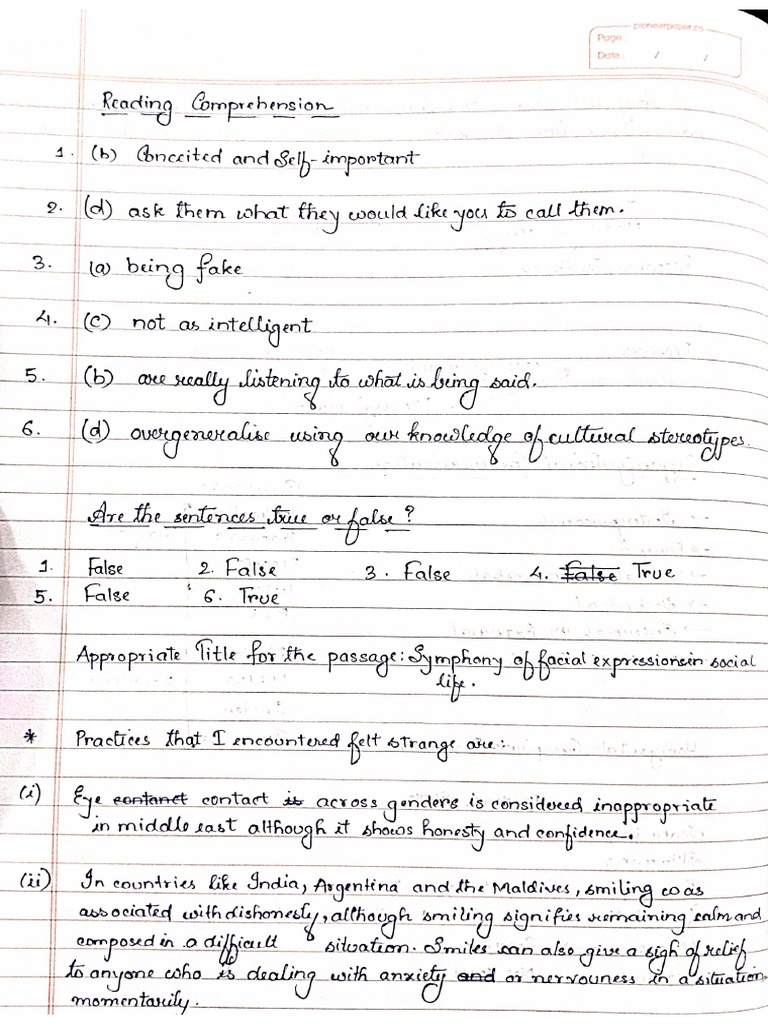 pioneerpaper.co
Page:
Date: / /
Reading Comprehension
1. (b) Conceited and Self-important
2. (d) ask them what they would like you to call them.
3. (a) being fake
4. (c) not as intelligent
5. (b) are really listening to what is being said.
6. (d) overgeneralise using our knowledge of cultural stereotypes.
Are the sentences true or false?
1. False 2. False 3. False 4. False True
5. False 6. True
Appropriate Title for the passage: Symphony of facial expressions in social
life.
* Practices that I encountered felt strange are:
(i) Eye contanct contact is across genders is considered inappropriate
in middle east although it shows honesty and confidence.
(ii) In countries like India, Argentina and the Maldives, smiling was
associated with dishonesty, although smiling signifies remaining calm and
composed in a difficult situation. Smiles can also give a sigh of relief
to anyone who is dealing with anxiety and or nervouness in a situation,
momentarily.